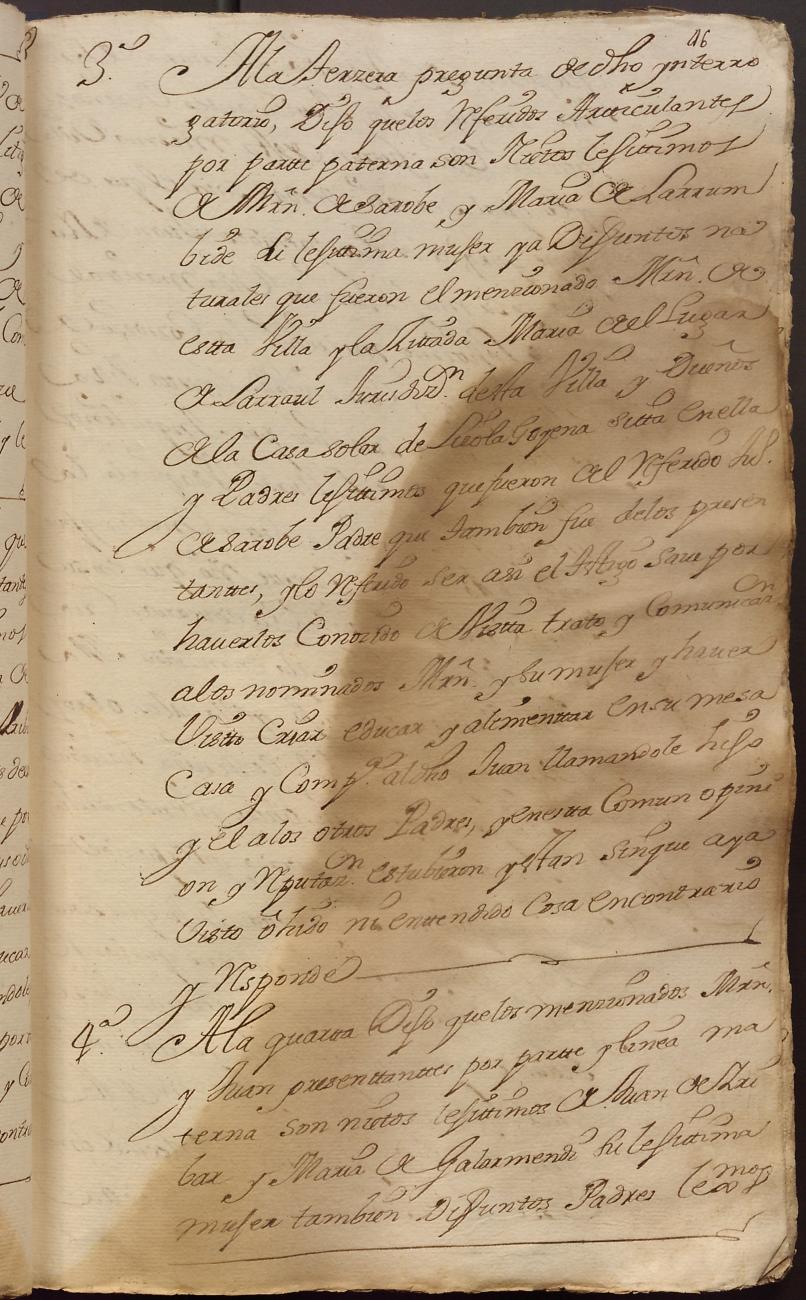 46
3.a A la terzera pregunta de dho ynterro
gatorio, Dijo que los Referidos Articulantes
por parte paterna son Nietos lejitimos
de Mrn. de Sarobe y Maria de Larrum
bide su lejitima mujer ya Difuntos na
turales que fueron el menzionado Mrn. de
esta Villa y la Zitada Maria del Lugar
de Larraul Jurisdizn. desta Villa y Dueños
de la Casa solar de sitta en ella
y Padres lejitimos que fueron del Referido Jul.
de Sarobe Padre que tambien fue de los presen
tantes, y lo Referido ser asi el testigo save por
haverlos Conozido de Vistta trato y Comunicazn
a los nominados Mrn. y su mujer y haver
Visto Criar educar y alimenttar en su mesa
Casa y Compa. al dho Juan llamandole hijo
y el a los otros Padres, y en estta Comun opini
on y Reputazn. estubieron y estan sin que aya
Visto ohido ni entendido Cosa en contrario
y Responde
4.a A la quarta Dijo que los menzionados Mrn.
y Juan presenttanttes por partte y linea ma
terna son nietos lejitimos de Juan de Yri
bar y Maria de Galarmendi su lejittima
mujer tambien Difuntos Padres lexmos